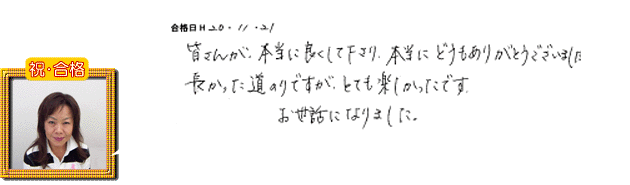 合格日 H 20・11・21
皆さんが、本当に良くして下さり、本当にどうもありがとうございました
長かった道のりですが、とても楽しかったです。
お世話になりました。
祝・合格